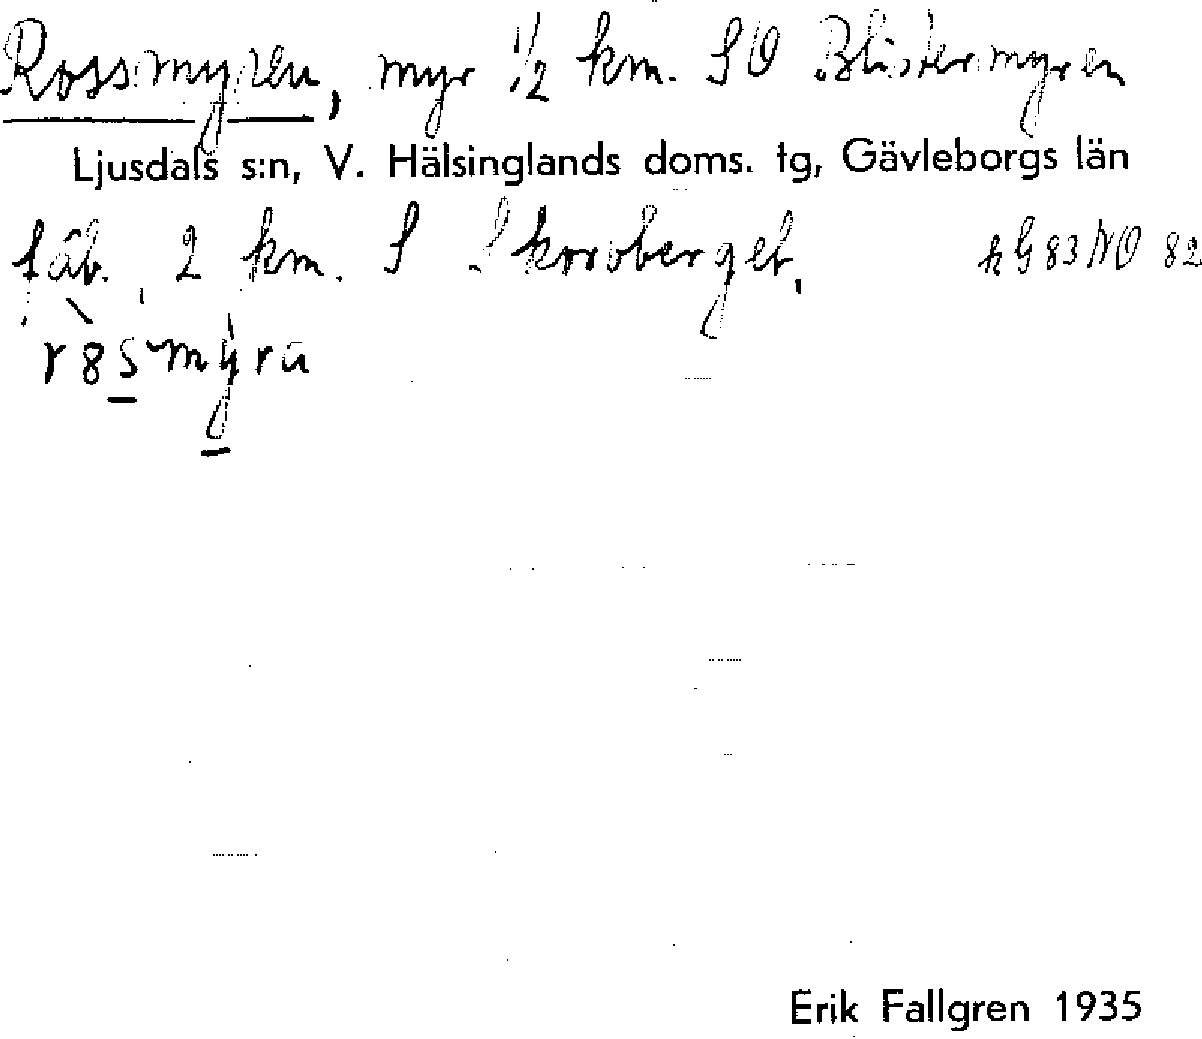 Rossmyren, myr 1/2 km. SO Blistermyren
Ljusdals s:n, V. Hälsinglands doms. tg, Gävleborgs län
fäb. 2 km. S
83 NO 82
Erik Fallgren 1935